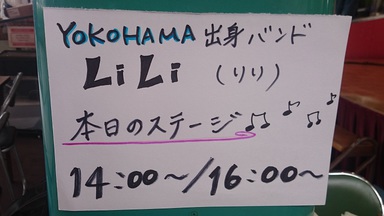 YOKOHAMA 出身バンド
LiLi (りり)
本日のステージ♫♪♫♪
14:00〜/16:00〜